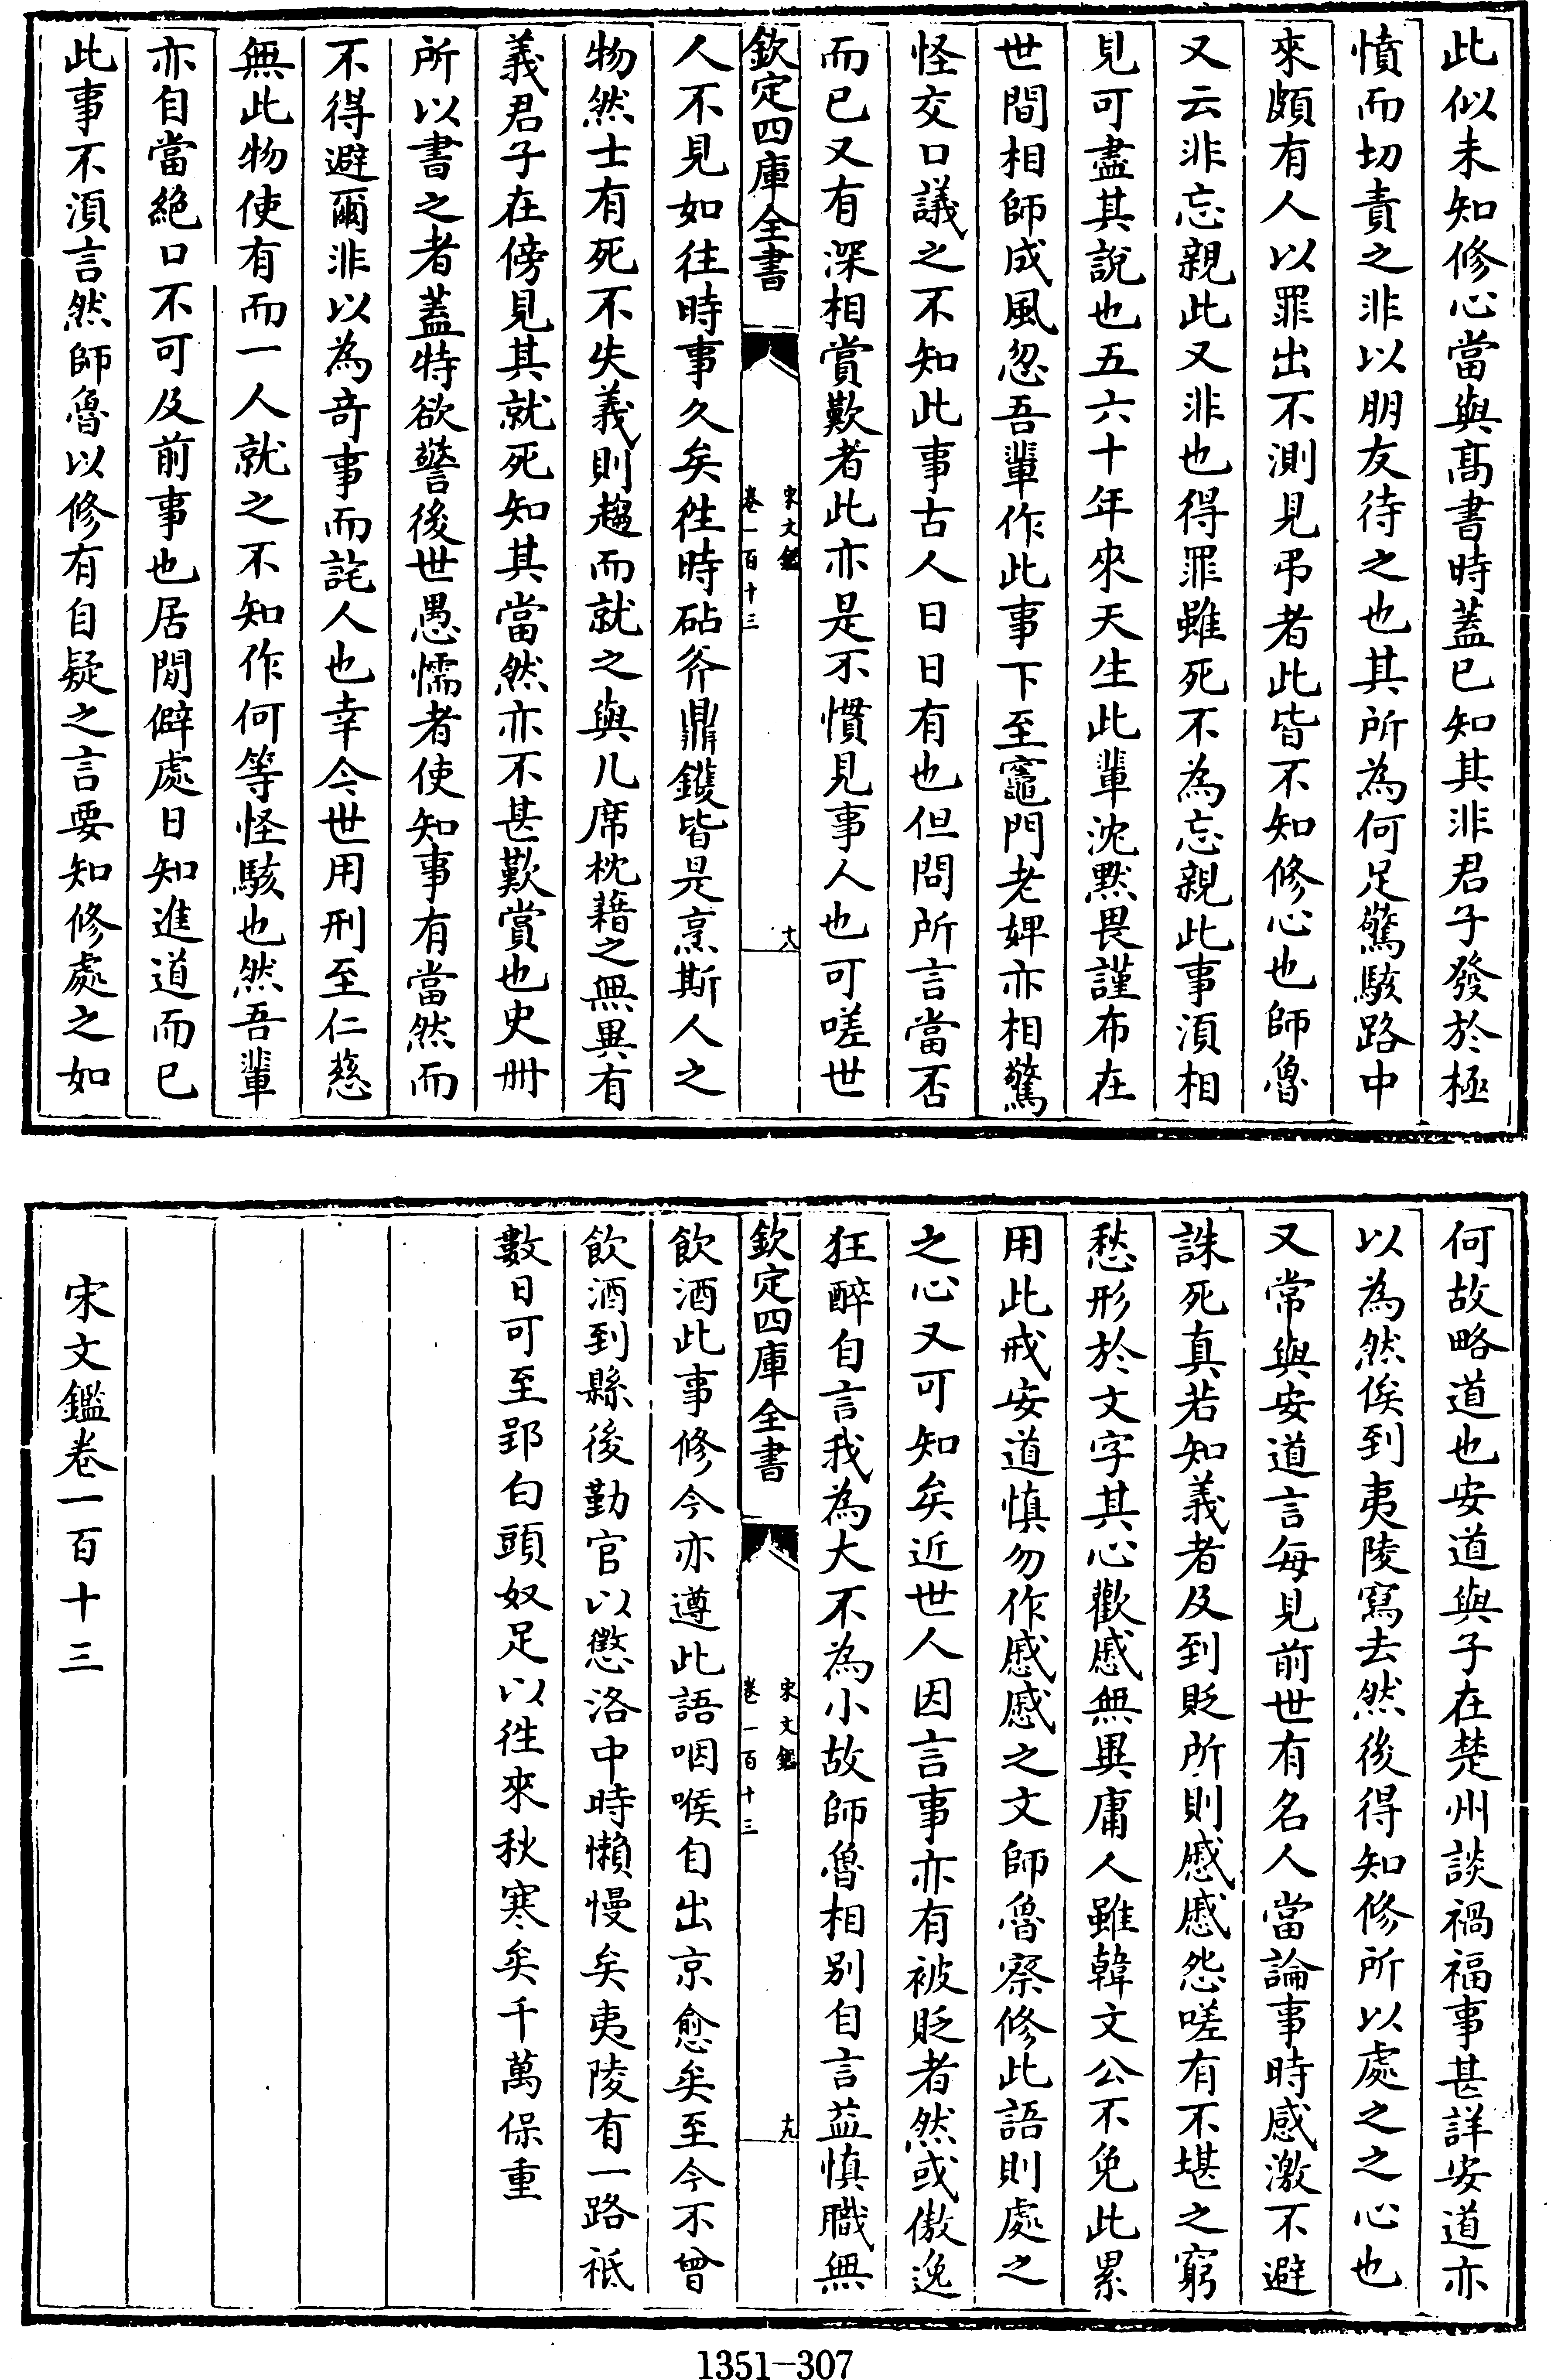 此似未知修心當與髙書時蓋已知其非君子發於極
憤而切責之非以朋友待之也其所為何足驚駭路中
來頗有人以罪出不測見弔者此皆不知修心也師魯
又云非忘親此又非也得罪雖死不為忘親此事湏相
見可盡其說也五六十年來天生此輩沈默畏謹布在
世間相師成風忽吾輩作此事下至竈門老婢亦相驚
怪交口議之不知此事古人日日有也但問所言當否
而已又有深相賞歎者此亦是不慣見事人也可嗟世
欽定四庫全書
宋文鑑
卷一百十三
十八
人不見如往時事久矣徃時砧斧鼎鑊皆是烹斬人之
物然士有死不失義則趨而就之與几席枕藉之無異有
義君子在傍見其就死知其當然亦不甚歎賞也史冊
所以書之者蓋特欲警後世愚懦者使知事有當然而
不得避爾非以為竒事而詫人也幸今世用刑至仁慈
無此物使有而一人就之不知作何等怪駭也然吾輩
亦自當絶口不可及前事也居閒僻處日知進道而已
此事不湏言然師魯以修有自疑之言要知修處之如
何故略道也安道與子在楚州談禍福事甚詳安道亦
以為然俟到夷陵寫去然後得知修所以處之之心也
又常與安道言每見前世有名人當論事時感激不避
誅死真若知義者及到貶所則慼慼怨嗟有不堪之窮
愁形於文字其心歡慼無異庸人雖韓文公不免此累
用此戒安道慎勿作慼慼之文師魯察修此語則處之
之心又可知矣近世人因言事亦有被貶者然或傲逸
狂醉自言我為大不為小故師魯相别自言益慎職無
欽定四庫全書
宋文鑑
卷一百十三
十九
飲酒此事修今亦遵此語咽喉自出京愈矣至今不曾
飲酒到縣後勤官以懲洛中時懶慢矣夷陵有一路祗
數日可至郢白頭奴足以徃來秋寒矣千萬保重
宋文鑑卷一百十三
1351-307